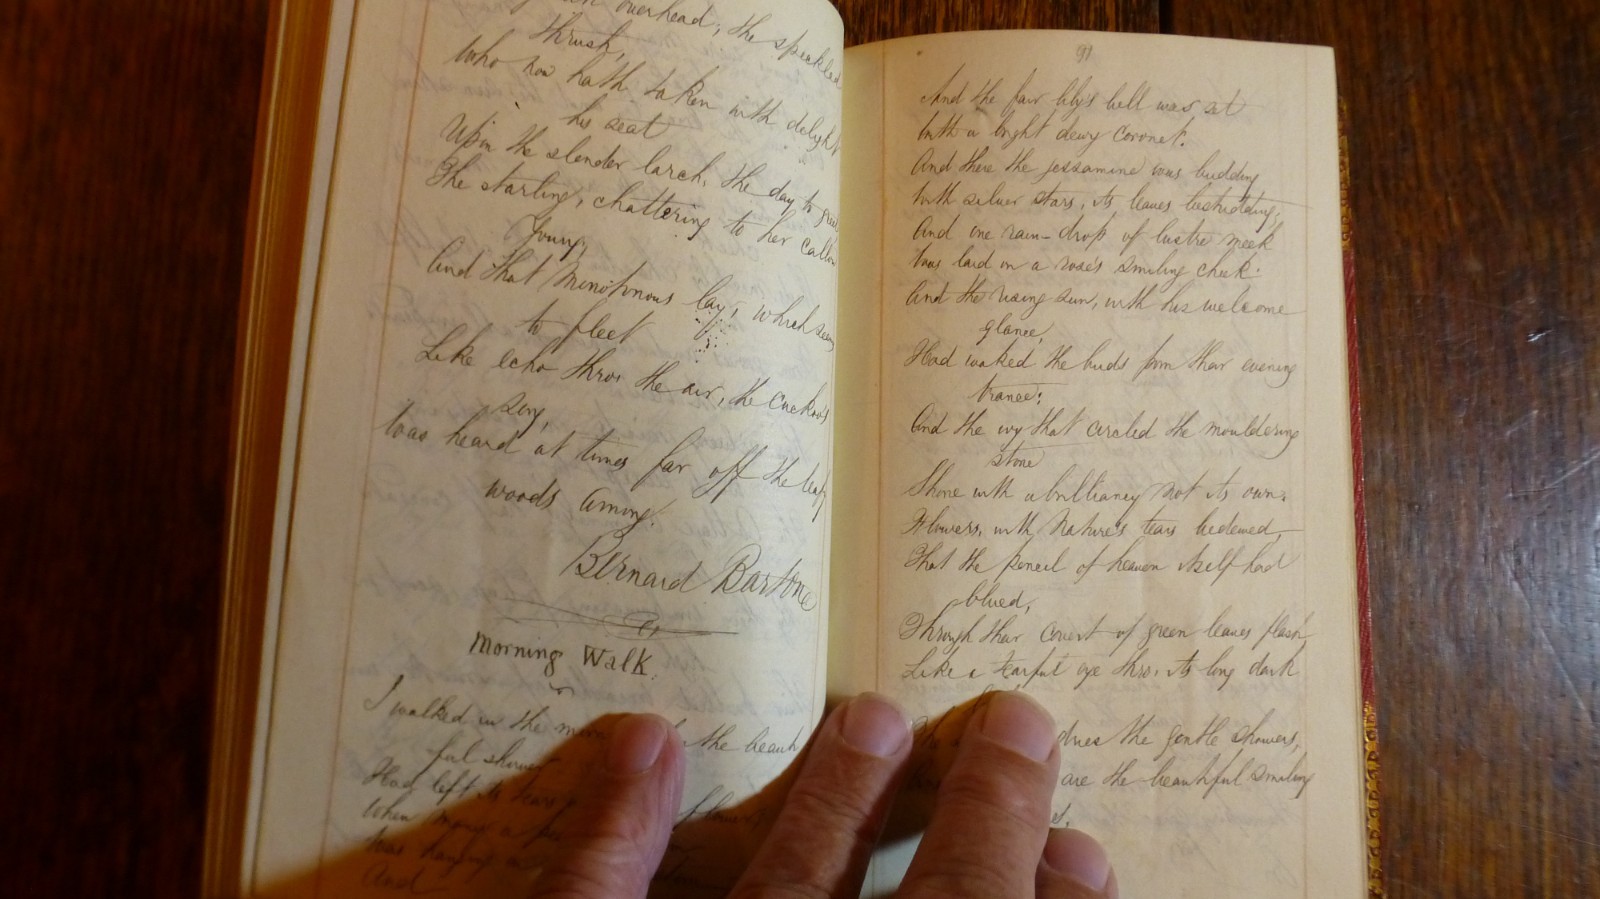 overhead; the speckled
thrush,
Who now hath taken with delight
his seat
Upon the slender larch, the day to greet
The starling, chattering to her callow
young;
And that monotonous lay, which seems
to fleet
Like echo thro' the air, the cuckoo's
song,
Was heard at times far off the leafy
woods among.
Bernard Barton
Morning Walk.
I walked in the morn the beauti
ful shower
Had left its tears flowers
When many a
Was hanging
And
91
And the fair lily's bell was set
With a bright dewy coronet.
And there the jessamine was budding
With silver stars, its leaves bestudding;
And one rain-drop of lustre meek
Was laid on a rose's smiling cheek.
And the rising sun, with his welcome
glance,
Had waked the buds from their evening
trance;
And the ivy that circled the mouldering
stone
Shone with a brilliancy not its own.
Flowers, with Nature's tears bedewed,
That the pencil of heaven itself had
blued,
Through their covert of green leaves flash,
Like a tearful eye thro' its long dark
dries the gentle showers,
are the beautiful smiling